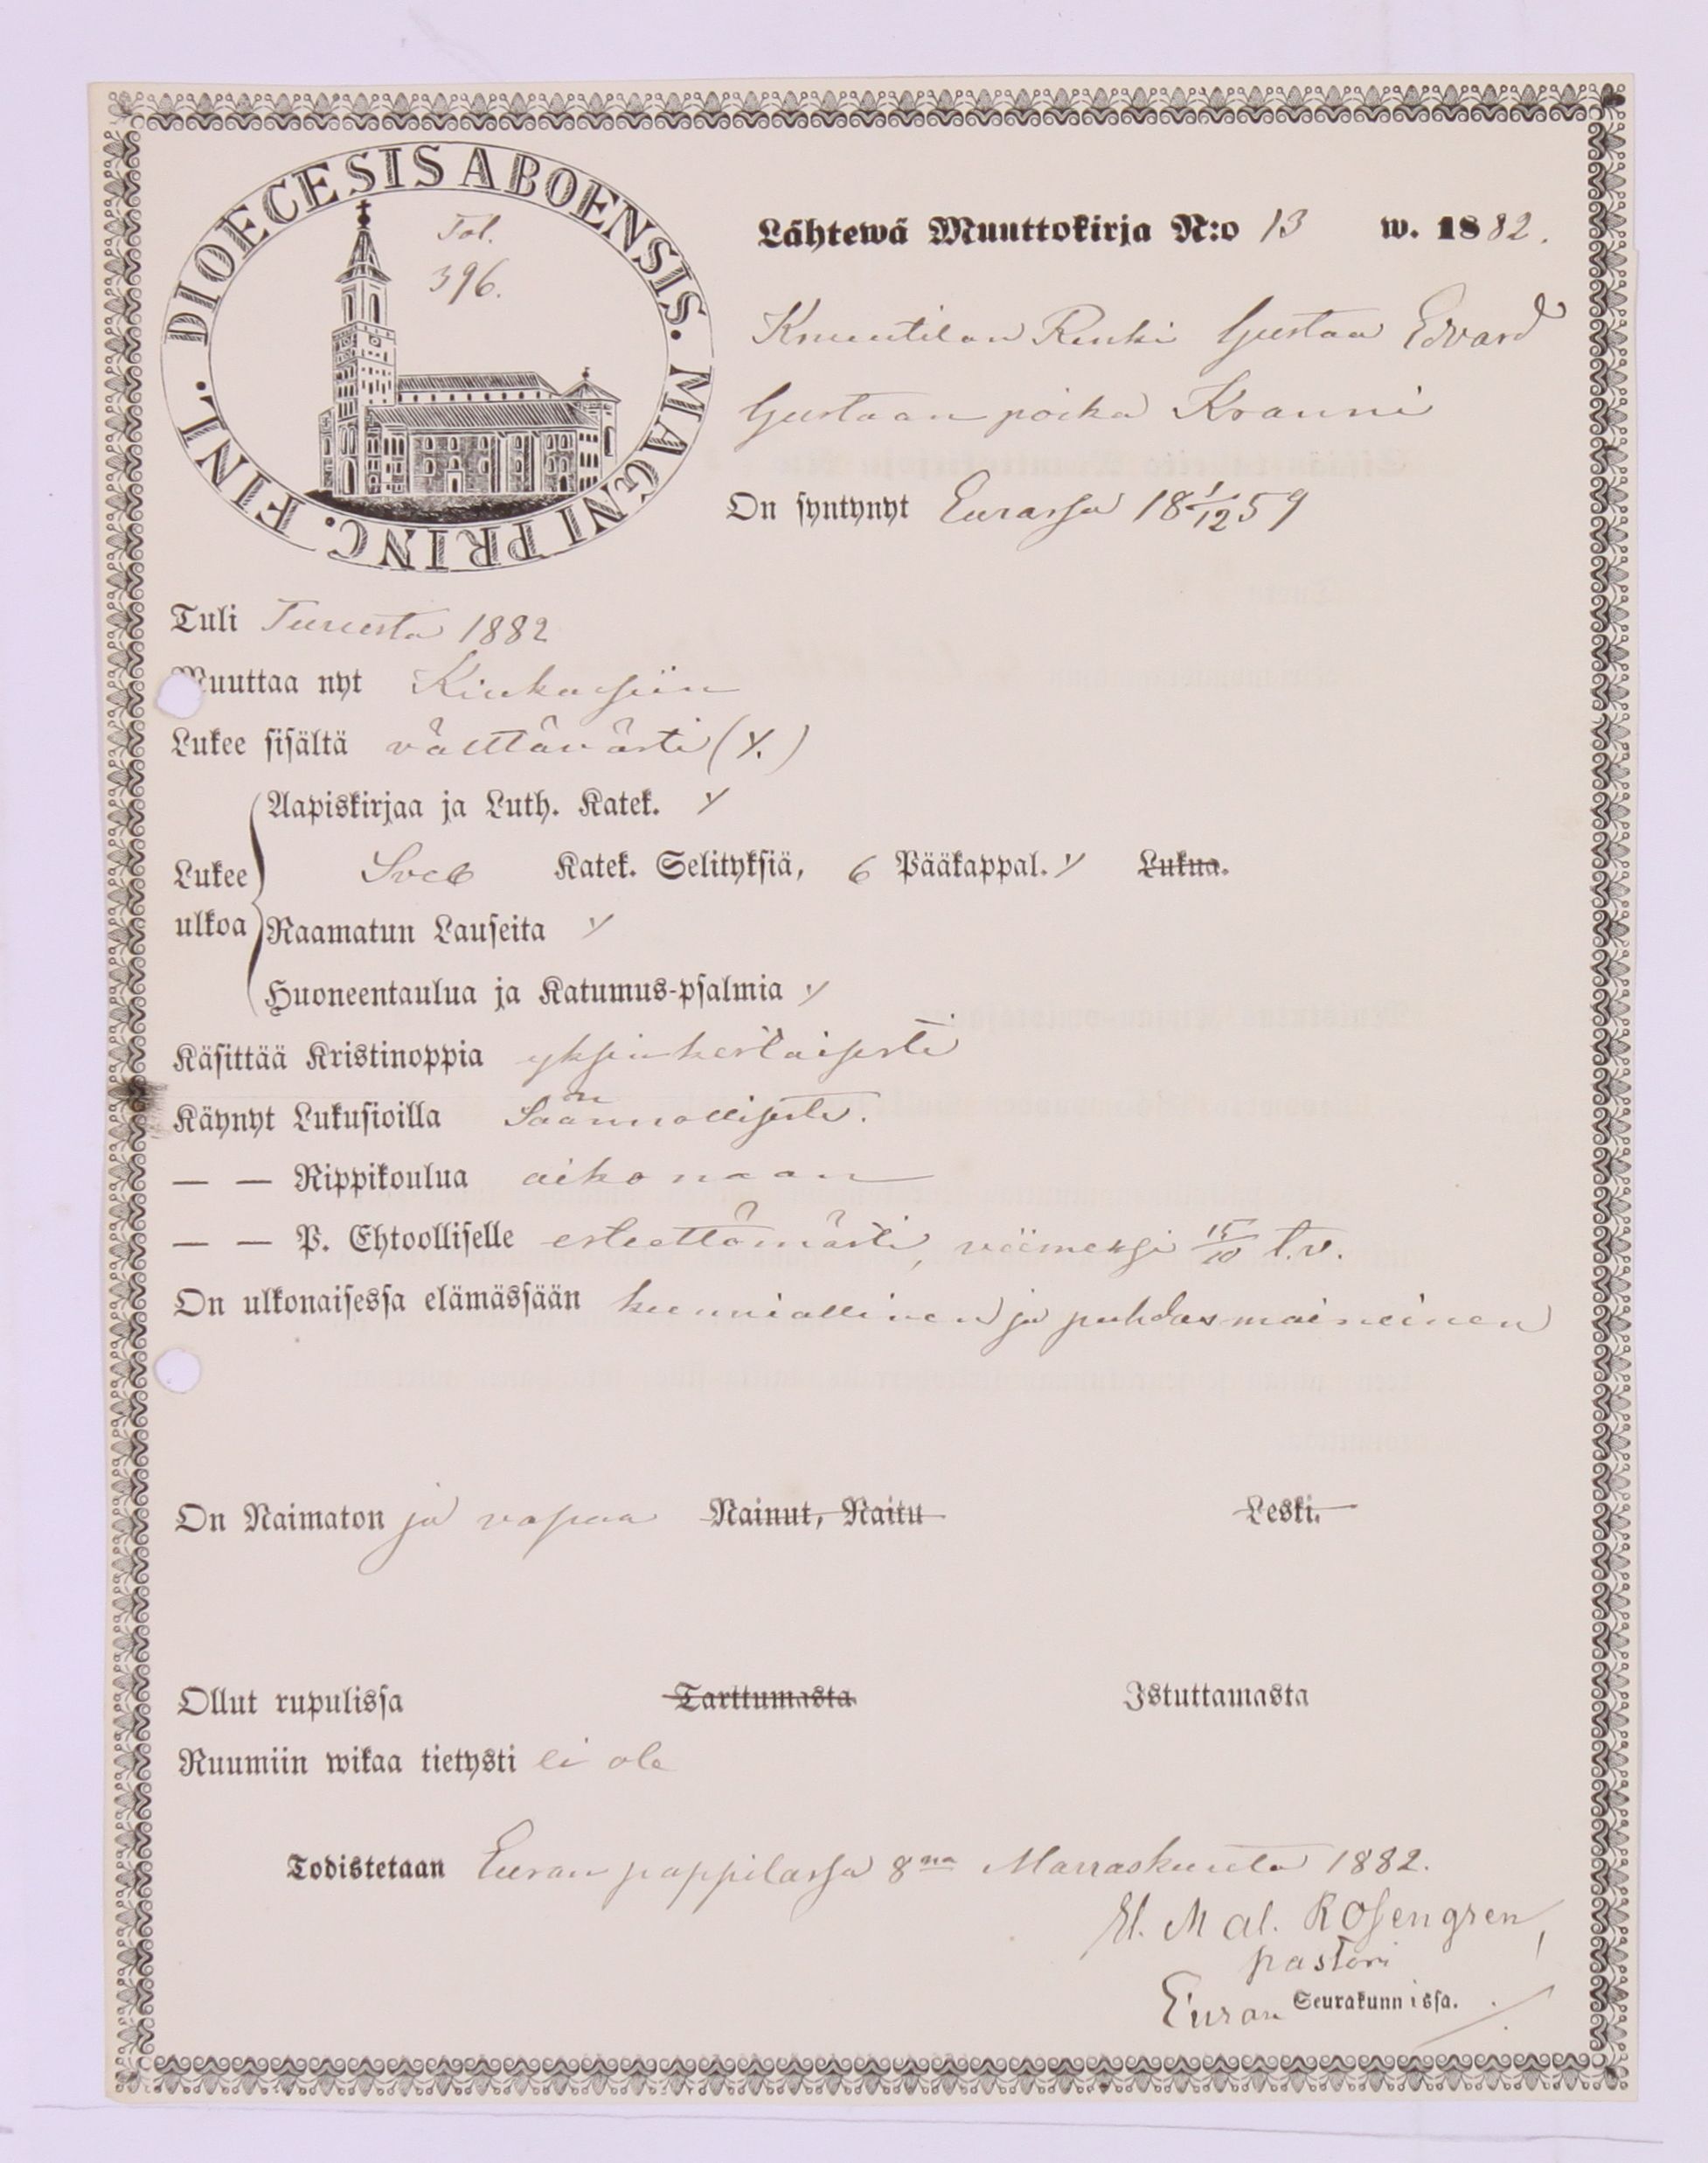 DIOECESIS ABOENSIS. MAGNI PRINC. FINL.
Fol.
396.
Lähtewä Muuttokirja N:o 13 w. 1882.
Knuutilan Renki Gustaa Edvard
Gustaan poika Kranni
On syntynyt Eurassa 18 1/12 59
Tuli Turusta 1882
Muuttaa nyt Kiukaisiin
Lukee sisältä välttävästi (Y.)
Aapiskirjaa ja Luth. Katek. Y
Lukee ulkoa
Sveb Katek. Selityksiä, 6 Pääkappal. Y Lukua.
Raamatun Lauseita Y
Huoneentaulua ja Katumus-psalmia Y
Käsittää Kristinoppia yksinkertaisesti
Käynyt Lukusioilla Säännöllisesti.
— — Rippikoulua aikonaan
— — P. Ehtoolliselle esteettömästi, viimeksi 15/10 t.v.
On ulkonaisessa elämässään kunniallinen ja puhdasmaineinen
On Naimaton ja vapaa Nainut, Naitu Leski.
Ollut rupulissa Tarttumasta Istuttamasta
Ruumiin wikaa tietysti ei ole
Todistetaan Euran pappilassa 8na Marraskuuta 1882.
Mal. Rosengren,
pastori
Euran Seurakunnissa.